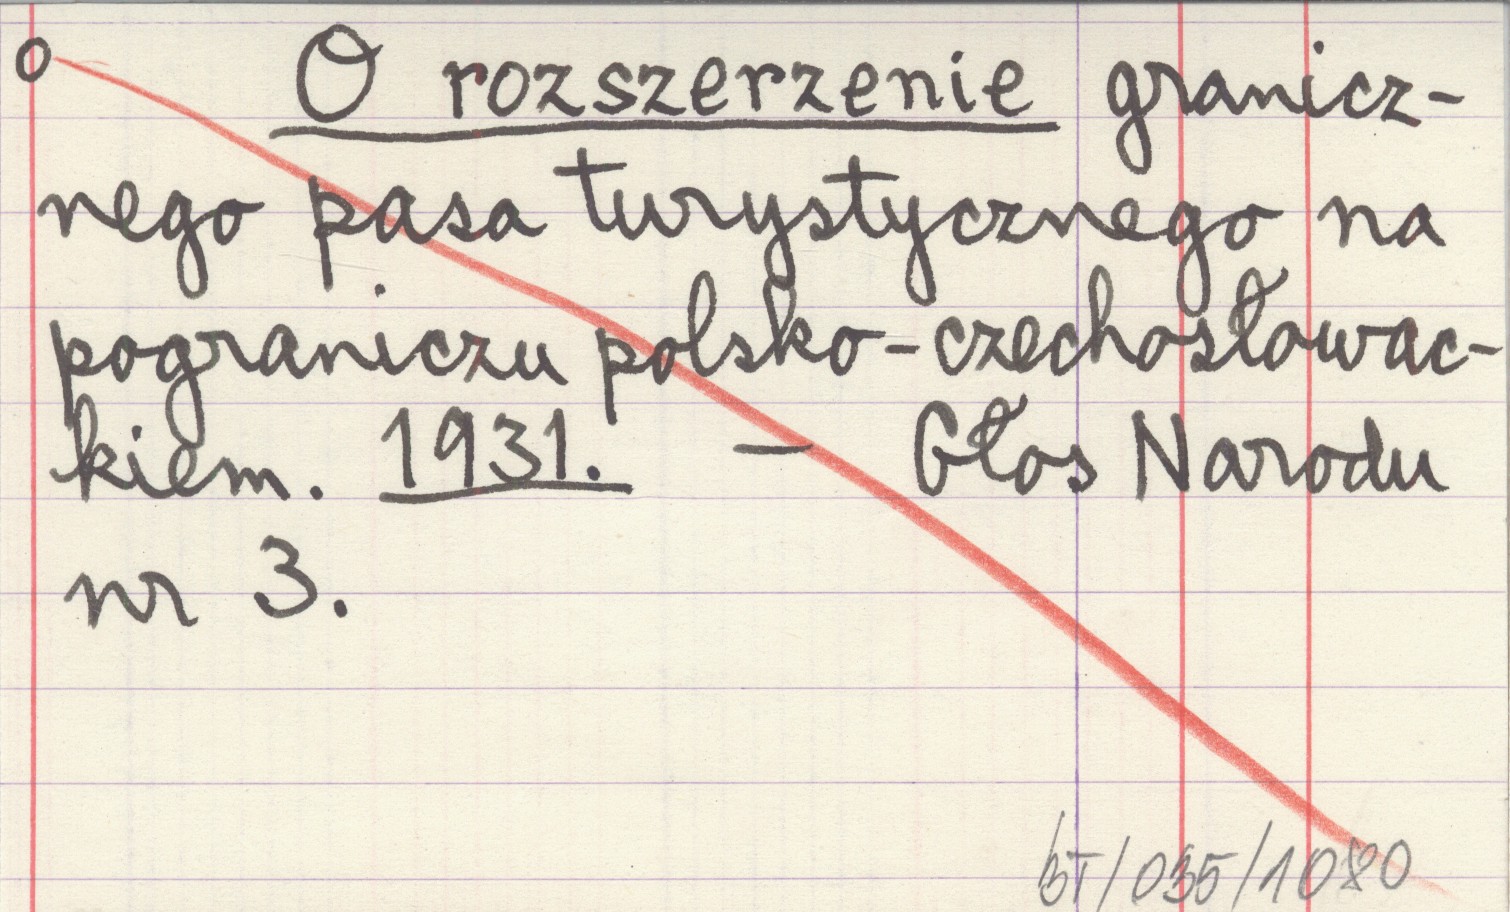 O O rozszerzenie granicz-
nego pasa turystycznego na
pograniczu polsko-czechosłowac-
kiem. 1931. – Głos Narodu
nr 3.
BT/035/1080